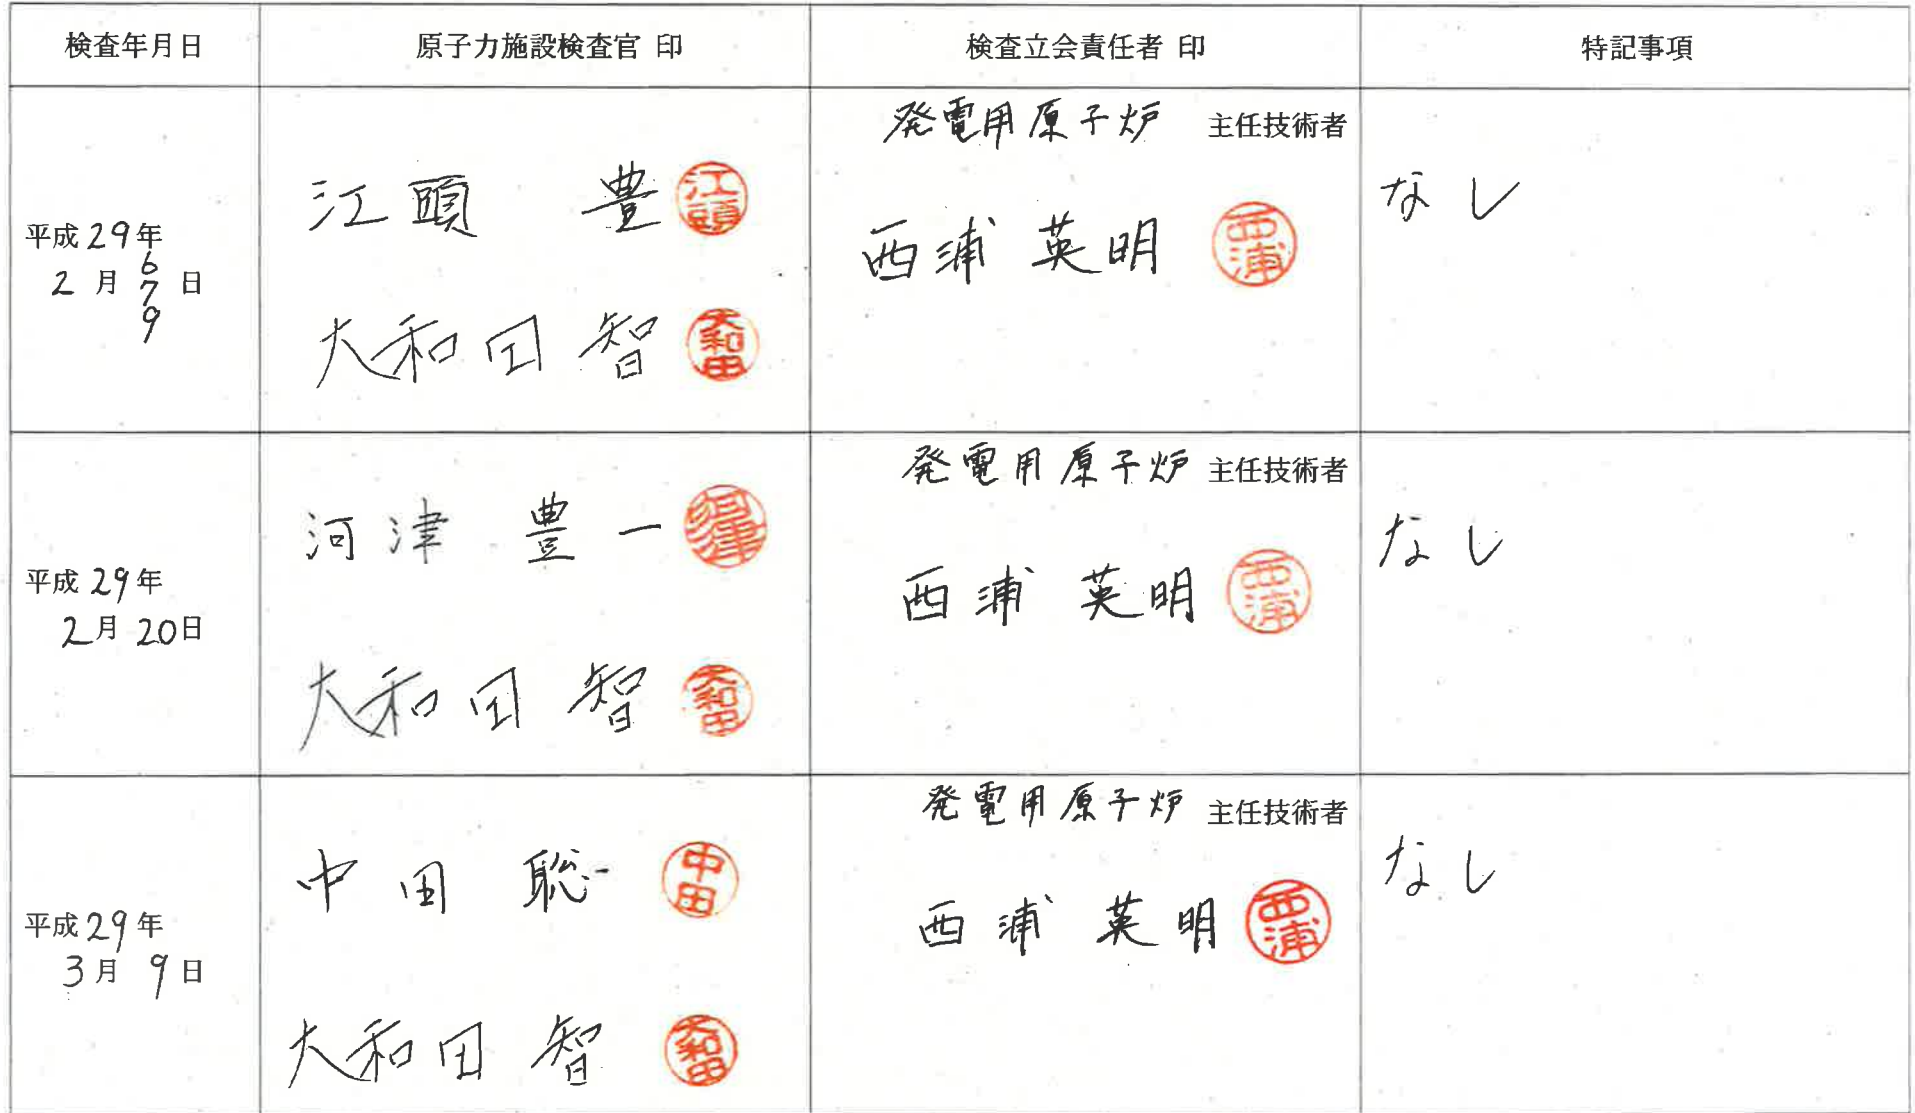 検査年月日 原子力施設検査官 印 検査立会責任者 印 特記事項
平成29年
2月 6 7 9 日
江頭 豊 江頭
大和田 智 大和田
発電用原子炉 主任技術者
西浦 英明 西浦
なし
平成29年
2月20日
河津 豊一 河津
大和田 智 大和田
発電用原子炉 主任技術者
西浦 英明 西浦
なし
平成29年
3月 9日
中田 聡 中田
大和田 智 大和田
発電用原子炉 主任技術者
西浦 英明 西浦
なし